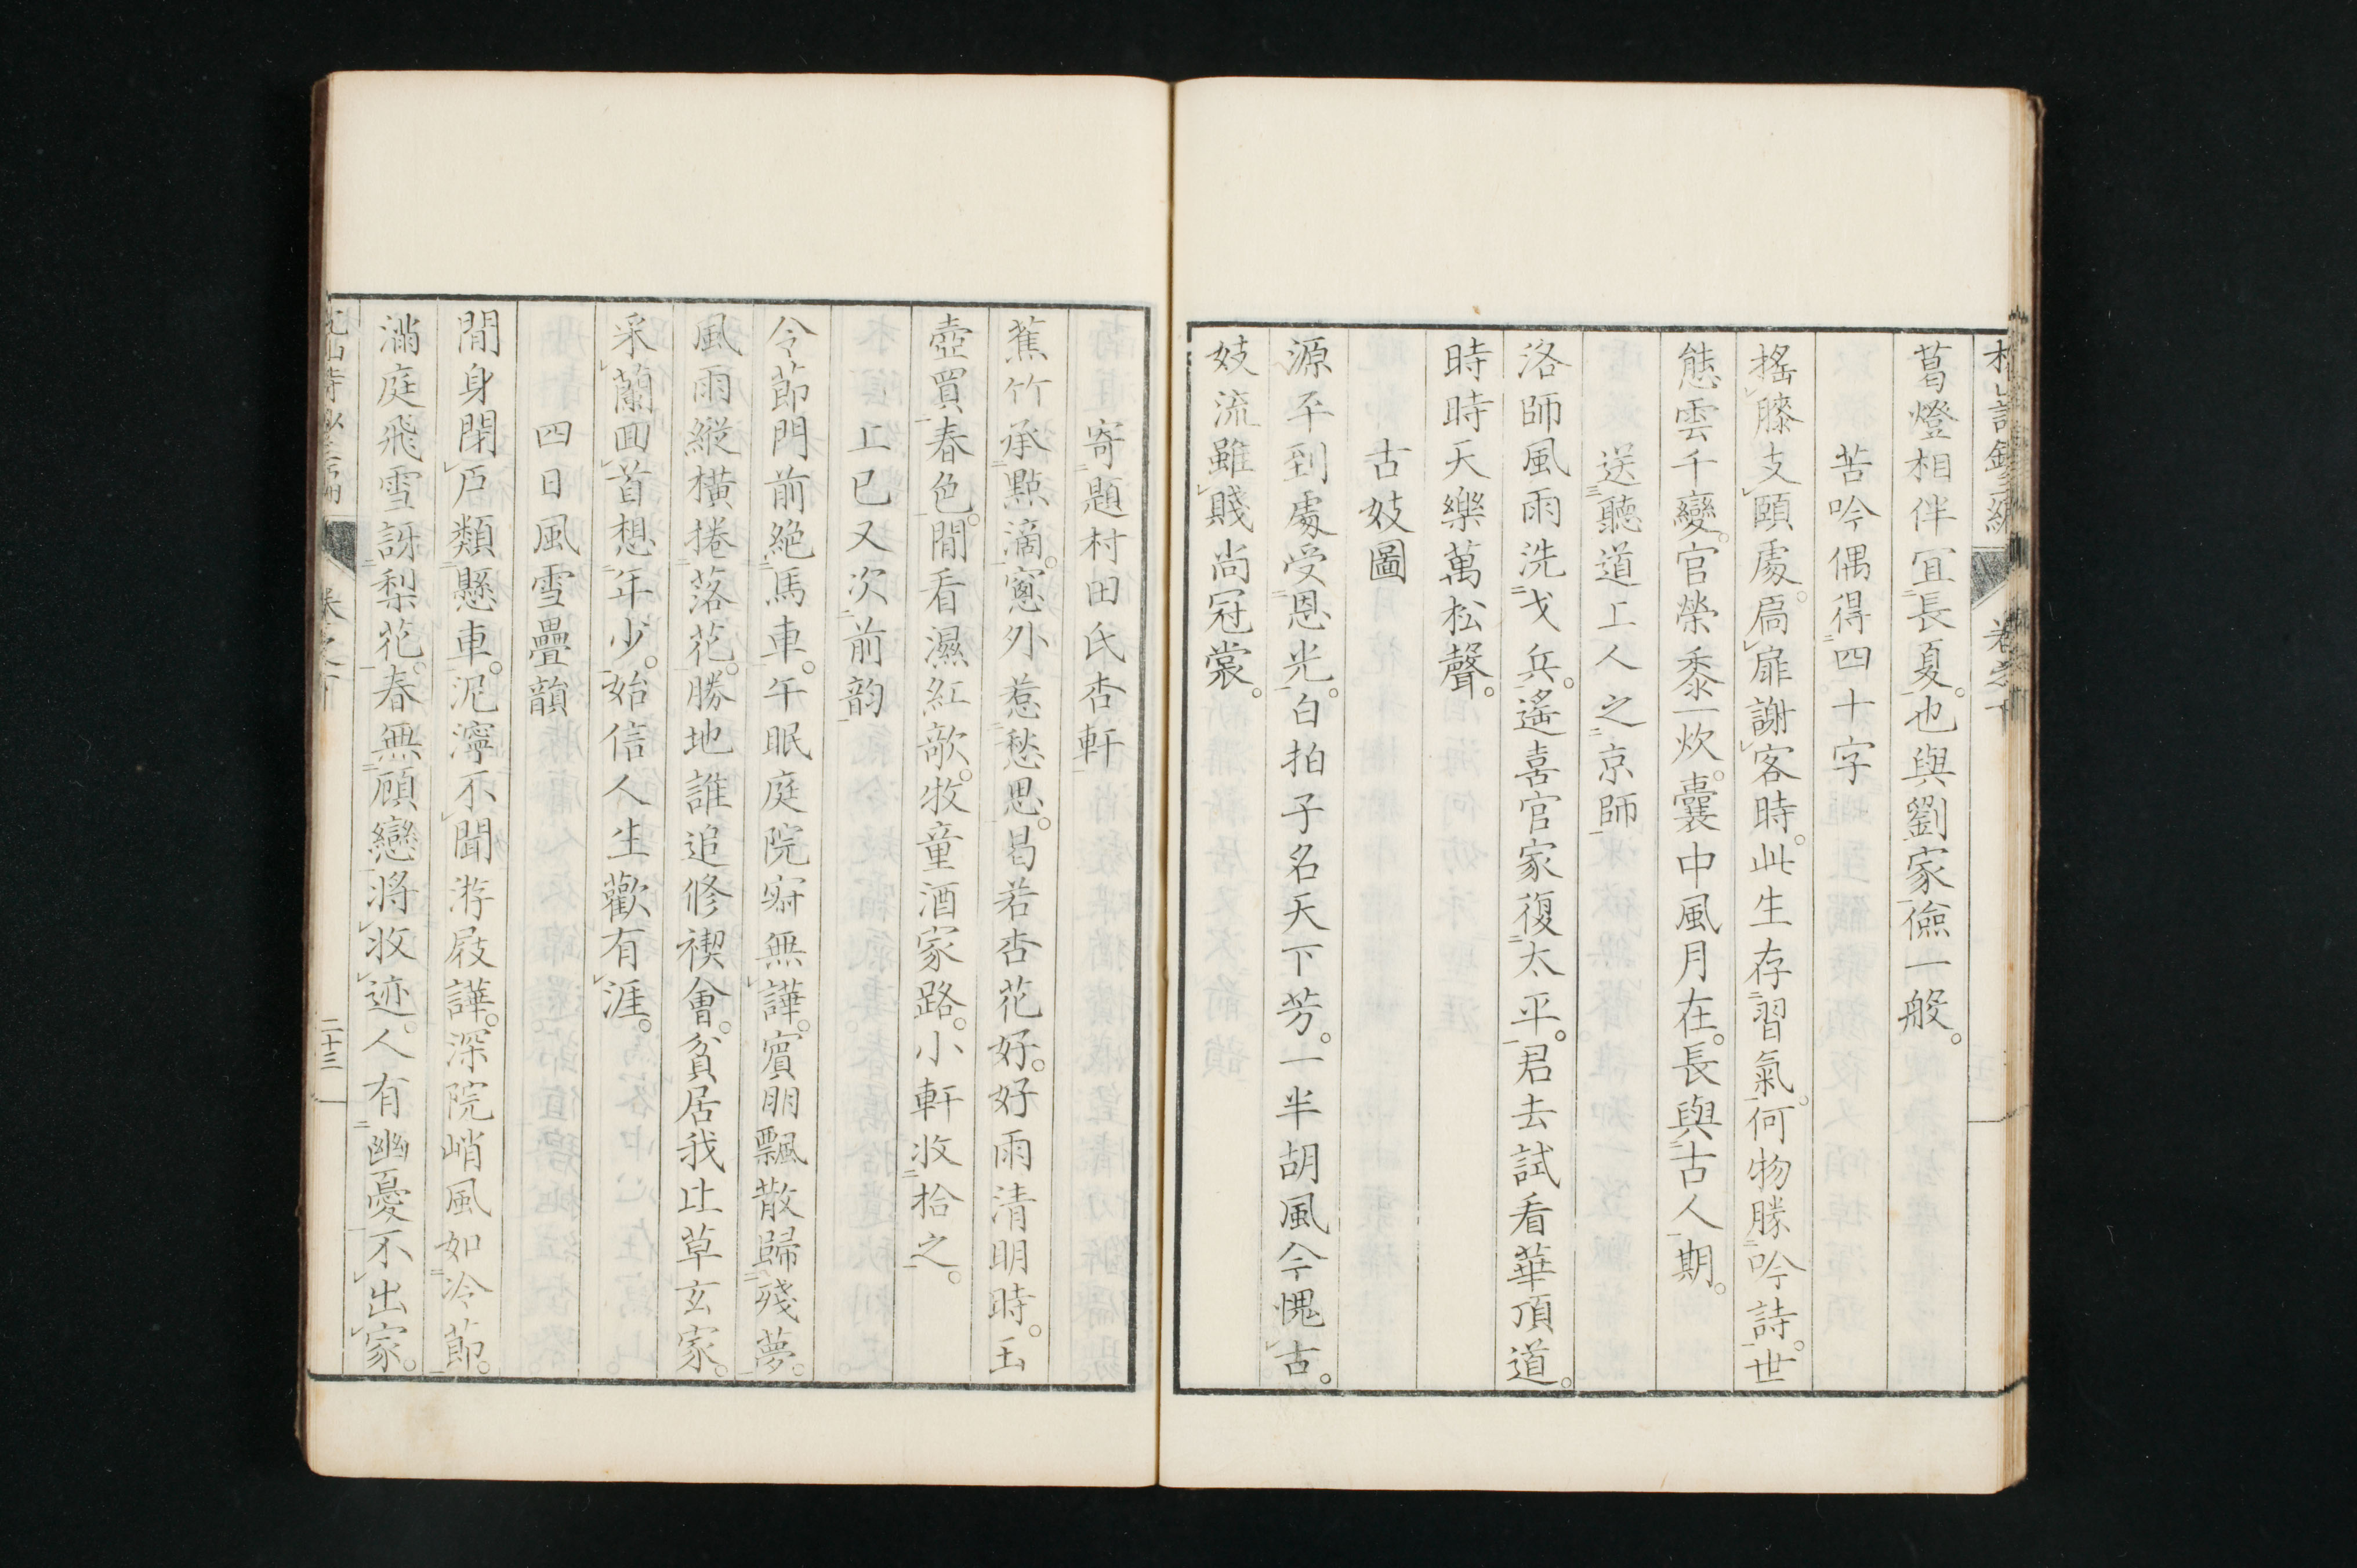 葛燈相伴宜長夏。也與劉家儉一般。
苦吟偶得四十字
搖膝支頤處。扃扉謝客時。此生存習氣。何物勝吟詩。世
態雲千變。官榮黍一炊。囊中風月在。長與古人期。
送聽道上人之京師
洛師風雨洗戈兵。遙喜官家復太平。君去試看華頂道。
時時天樂萬松聲。
古妓圖
源平到處受恩光。白拍子名天下芳。一半胡風今愧古。
妓流雖賤尚冠裳。
寄題村田氏杏軒
蕉竹承點滴。窻外惹愁思。曷若杏花好。好雨清明時。玉
壺買春色。閒看濕紅欹。牧童酒家路。小軒收拾之。
上巳又次前韵
令節門前絶馬車。午眠庭院寂無譁。賓朋飄散歸殘夢。
風雨縱橫捲落花。勝地誰追修禊會。貧居我比草玄家。
采蘭回首想年少。始信人生歡有涯。
四日風雪疊韻
閒身閉戶類懸車。泥濘不聞游屐譁。深院峭風如冷節。
滿庭飛雪訝梨花。春無顧戀將收迹。人有幽憂不出家。
卷之下
二十三